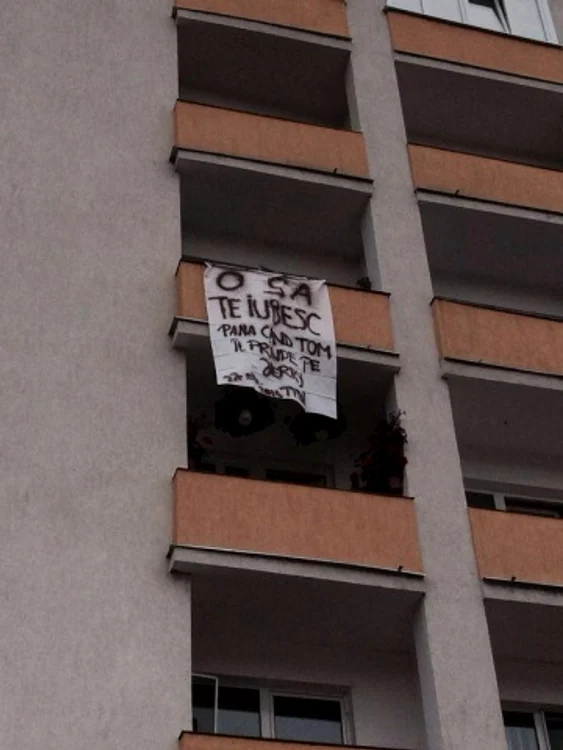 O SA
TE IUBESC
PANA CAND TOM
IL PRINDE PE
JERRY